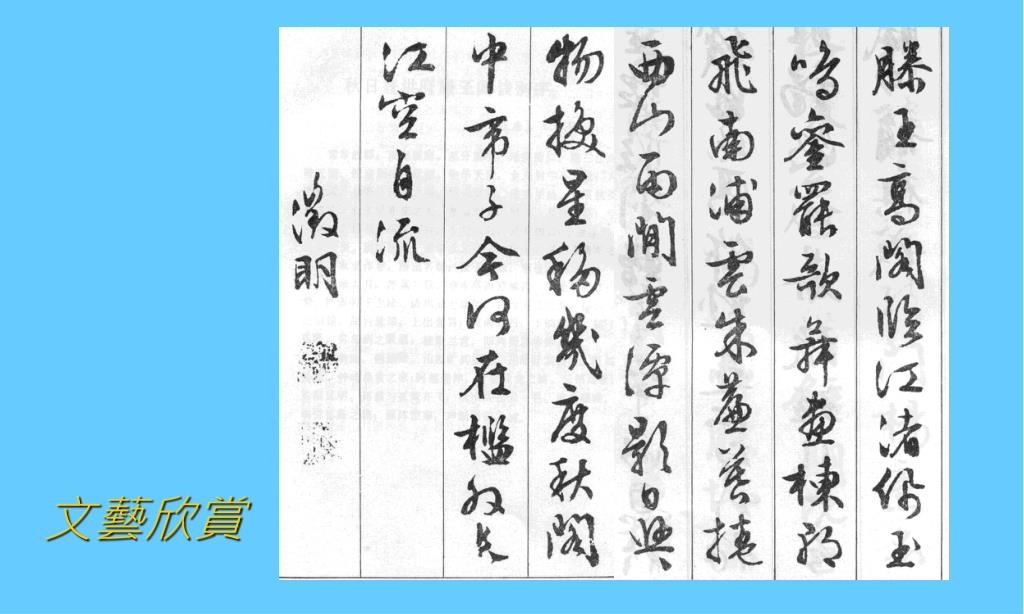 滕王高閣臨江渚佩玉
鳴鑾罷歌舞畫棟朝
飛南浦雲朱簾暮捲
西山雨閒雲潭影日悠々
物換星移幾度秋閣
中帝子今何在檻外長
江空自流
徵明
文藝欣賞